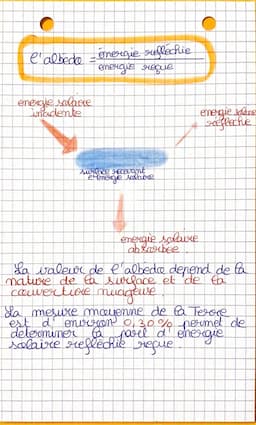 l'albedo = énergie réfléchie
énergie reçue
energie solaire
incidente
energie solaire
réflechie
surface recevant
l'énergie solaire
energie solaire
absorbee.
La valeur de l'albedo depend de la
nature de la surface et de la
couverture nuageuse.
La mesure moyenne de la Terre
est d' environ 0,30 % permet de
determiner la part d' énergie
solaire reflechie reçue.